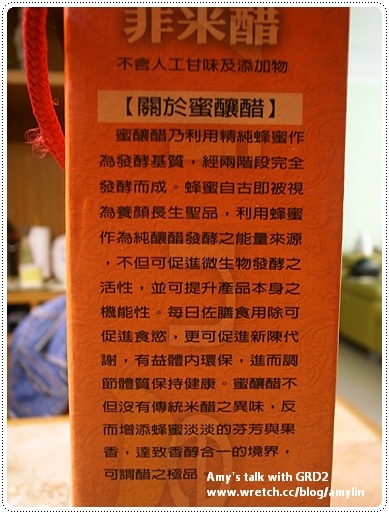 非米醋
不含人工甘味及添加物
【關於蜜釀醋】
蜜釀醋乃利用精純蜂蜜作
為發酵基質，經兩階段完全
發酵而成。蜂蜜自古即被視
為養顏長生聖品，利用蜂蜜
作為純釀醋發酵之能量來源
，不但可促進微生物發酵之
活性，並可提升產品本身之
機能性。每日佐膳食用除可
促進食慾，更可促進新陳代
謝，有益體內環保，進而調
節體質保持健康。蜜釀醋不
但沒有傳統米醋之異味，反
而增添蜂蜜淡淡的芬芳與果
香，達致香醇合一的境界，
可謂醋之極品
Amy's talk with GRD2
www.wretch.cc/blog/amylin